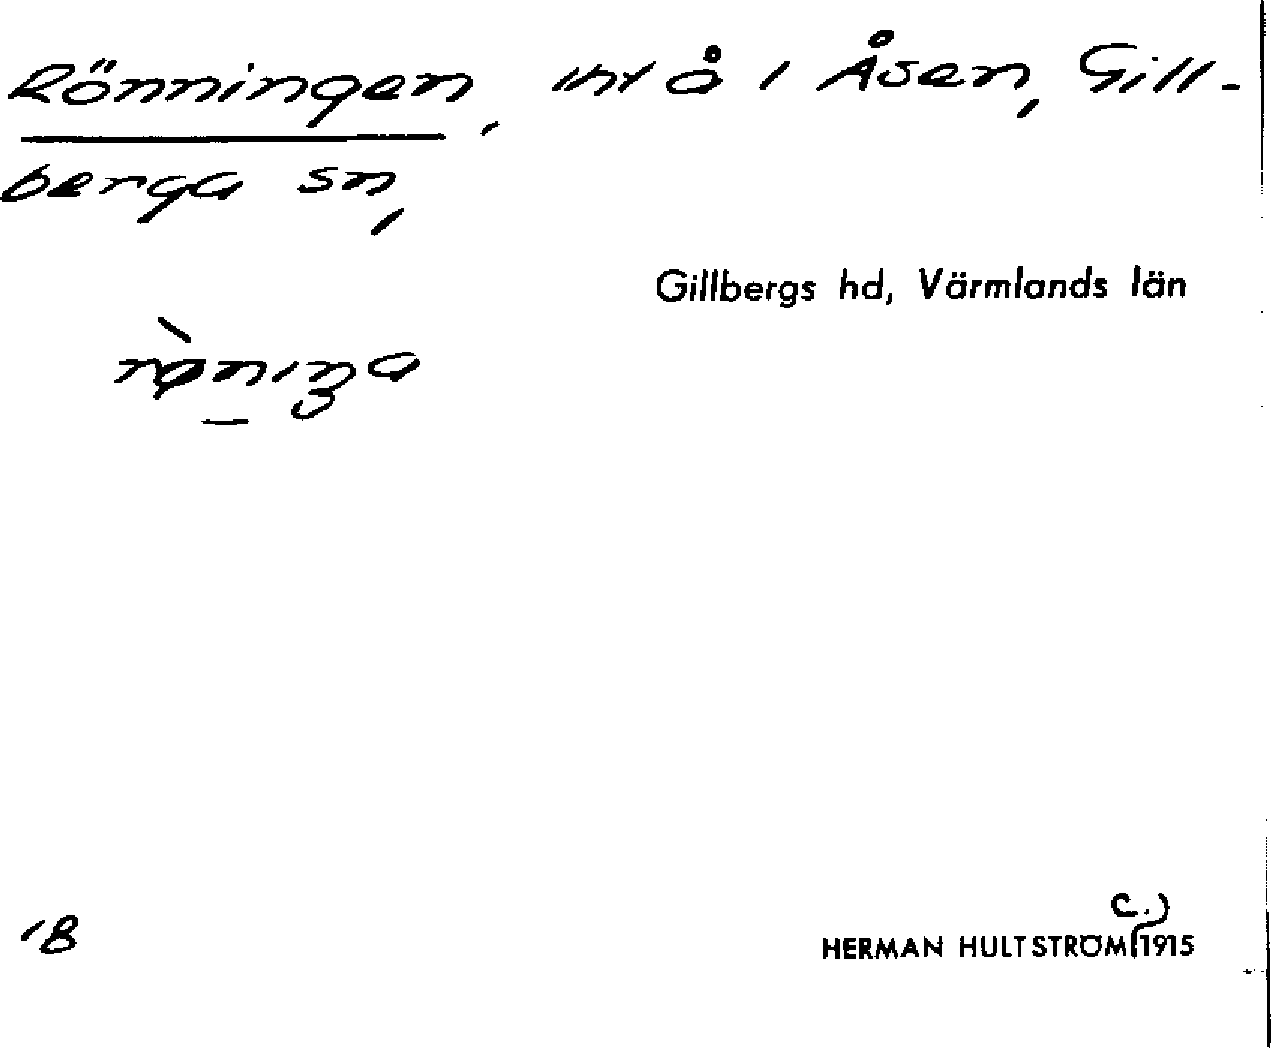 Rönningen, int å i Åsen, Gill-
berga sn,
Gillbergs hd, Värmlands län
rø̀niŋa
18
c.)
HERMAN HULTSTRÖM 1915